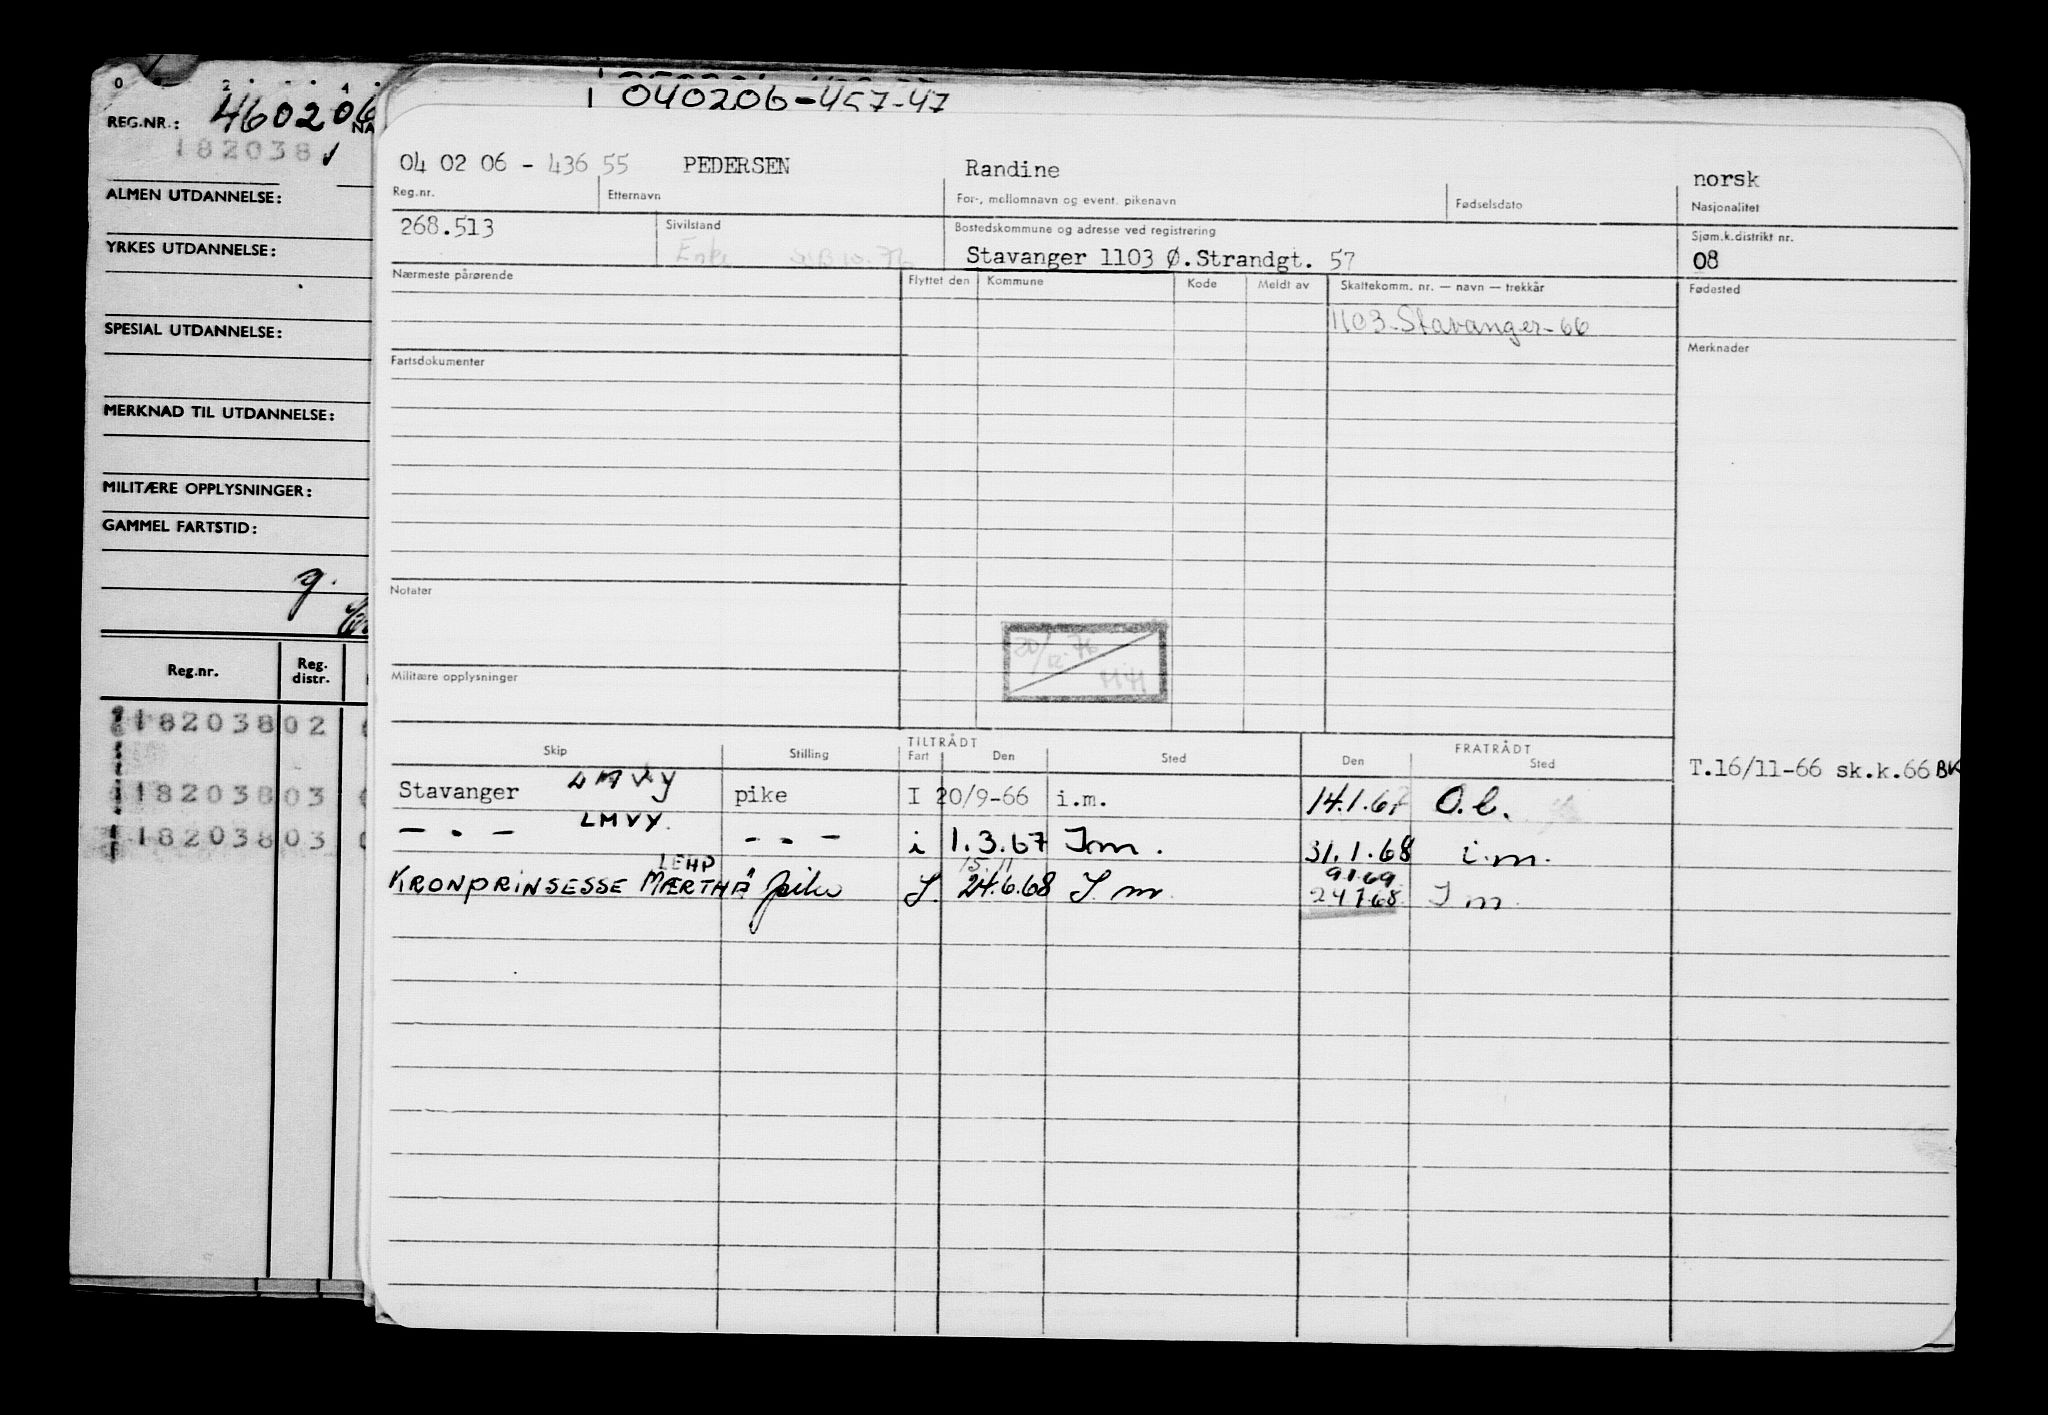 0 2 4
040206-457-47
REG.NR.: 460206 NA
182038
ALMEN UTDANNELSE:
YRKES UTDANNELSE:
SPESIAL UTDANNELSE:
MERKNAD TIL UTDANNELSE:
MILITÆRE OPPLYSNINGER:
GAMMEL FARTSTID:
g.
Reg.nr. Reg. distr.
182038 02
182038 03
182038 03
04 02 06 - 436 55 PEDERSEN Randine norsk
Reg.nr. Etternavn For-, mellomnavn og event. pikenavn Fødselsdato Nasjonalitet
268.513 Sivilstand Bostedskommune og adresse ved registrering Sjøm.k.distrikt nr.
Enke Stavanger 1103 Ø.Strandgt. 57 08
Nærmeste pårørende Flyttet den Kommune Kode Meldt av Skattekomm. nr. — navn — trekkår Fødested
1103-Stavanger-66
Fartsdokumenter Merknader
Notater
20/12.76
Militære opplysninger
Skip Stilling TILTRÅDT Fart Den Sted FRATRÅDT Den Sted
T.16/11-66 sk.k.66 BK
Stavanger LMVY pike I 20/9-66 i.m. 14.1.67 O.l.
— " — LMVY. - - - i 1.3.67 I.m. 31.1.68 i.m.
LEHP 15.11 9.1.69
KRONPRINSESSE MÆRTHA pike I. 24.6.68 I.m. 24.7.68 I m.